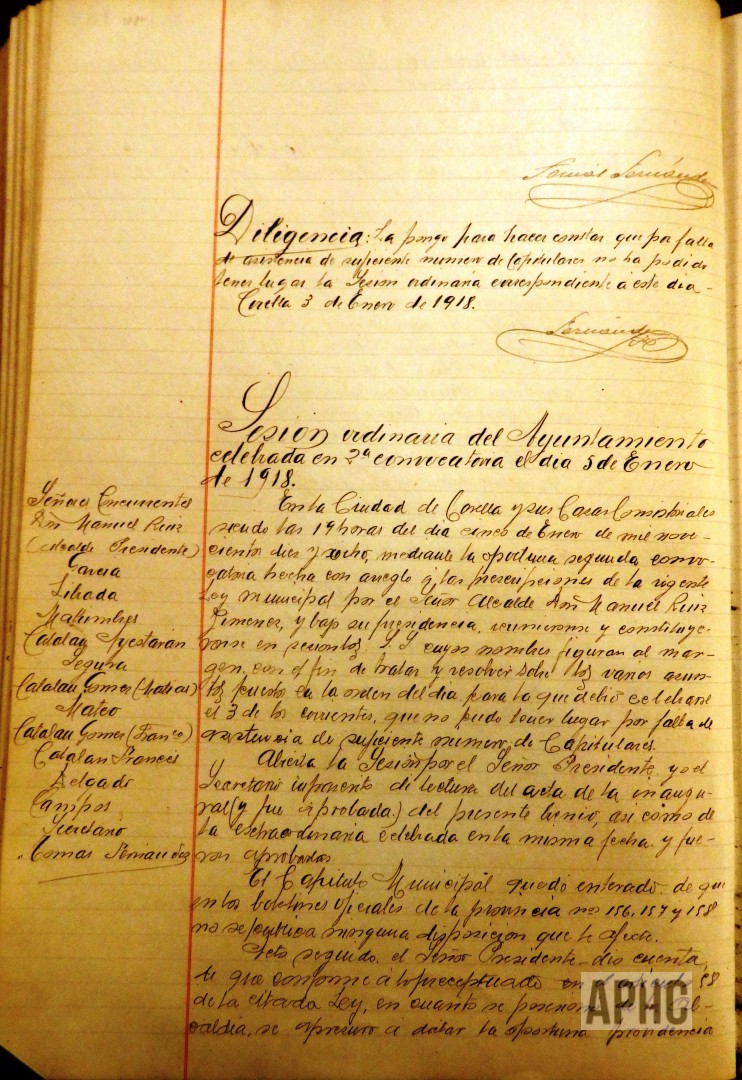 Tomás Fernández
Diligencia: La pongo para hacer constar que por falta
de asistencia de suficiente numero de Capitulares no ha podido
tener lugar la Sesion ordinaria correspondiente á este dia -
Corella 3 de Enero de 1918.
Fernández
Sesión ordinaria del Ayuntamiento
celebrada en 2ª convocatoria el dia 5 de Enero
de 1918.
Señores Concurrentes
Don Manuel Ruiz
(Alcalde Presidente)
Garcia
Librada
Catalan Ayestarán
Segura
Catalan Gomez (Matias)
Mateo
Catalan Gomez (Franco)
Catalan Francés
Delgado
Campos
Secretario
Tomas Fernandez
En la Ciudad de Corella y sus Casas Consistoriales
siendo las 19 horas del dia cinco de Enero de mil nove-
cientos diez y ocho, mediante la oportuna segunda convo-
catoria hecha con arreglo á las prescripciones de la vigente
Ley municipal por el Señor Alcalde Don Manuel Ruiz
Jimenez, y bajo su presidencia, reunieronse y constituye-
ronse en sesion los S.S. cuyos nombres figuran al mar-
gen, con el fin de tratar y resolver sobre los varios asun-
tos puesto en la orden del dia para la que debió celebrarse
el 3 de los corrientes, que no pudo tener lugar por falta de
asistencia de suficiente numero de Capitulares.
Abierta la Sesión por el Señor Presidente, yo el
Secretario imponente de lectura del acta de la inaugu-
ral (y fue aprobada) del presente bienio, asi como de
la extraordinaria celebrada en la misma fecha y fue-
ron aprobadas
El Capitulo Municipal quedó enterado de que
en los boletines oficiales de la provincia nos 156, 157 y 158
no se publica ninguna disposicion que le afecte.
Acto seguido, el Señor Presidente dió cuenta,
de que conforme á lo preceptuado en el articulo 58
de la citada Ley, en cuanto se posesionó de la Al-
caldia, se apresuró á dictar la oportuna providencia
APHC